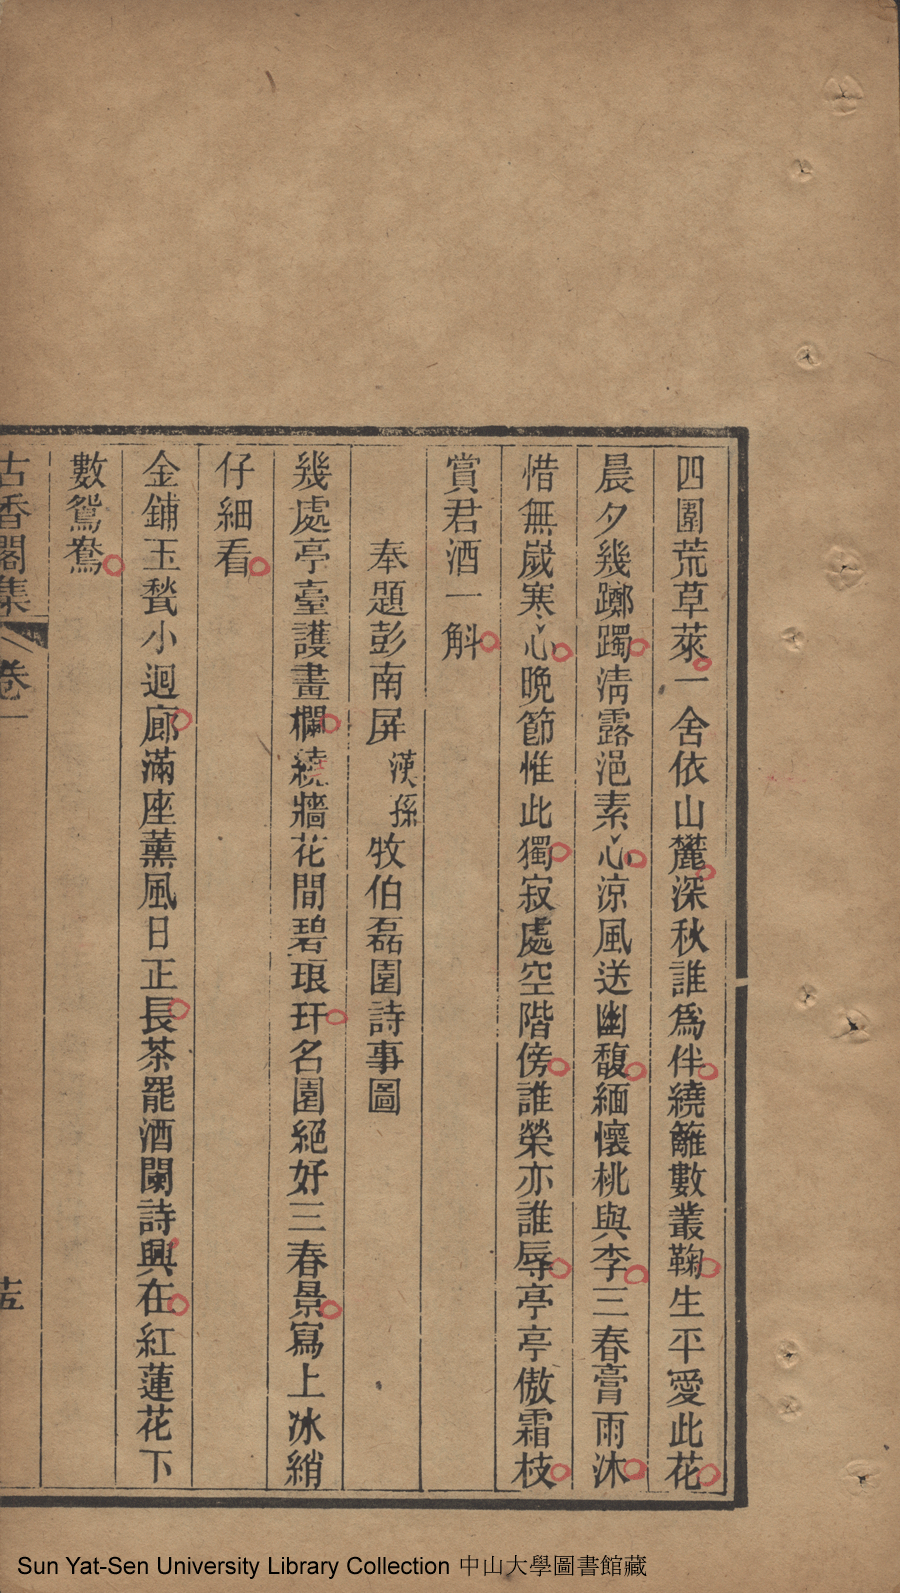 四圍荒草萊一舍依山麓深秋誰爲伴繞籬數叢鞠生平愛此花
晨夕幾躑躅淸露浥素心涼風送幽馥緬懷桃與李三春膏雨沐
惜無歲寒心晚節惟此獨寂處空階傍誰榮亦誰辱亭亭傲霜枝
賞君酒一斛
奉題彭南屏漢孫牧伯磊園詩事圖
幾處亭臺護畫欄繞牆花間碧琅玕名園絕好三春景寫上冰綃
仔細看
金鋪玉甃小迴廊滿座薰風日正長茶罷酒闌詩興在紅蓮花下
數鴛鴦
古香閣集 卷一 十五
Sun Yat-Sen University Library Collection 中山大學圖書館藏